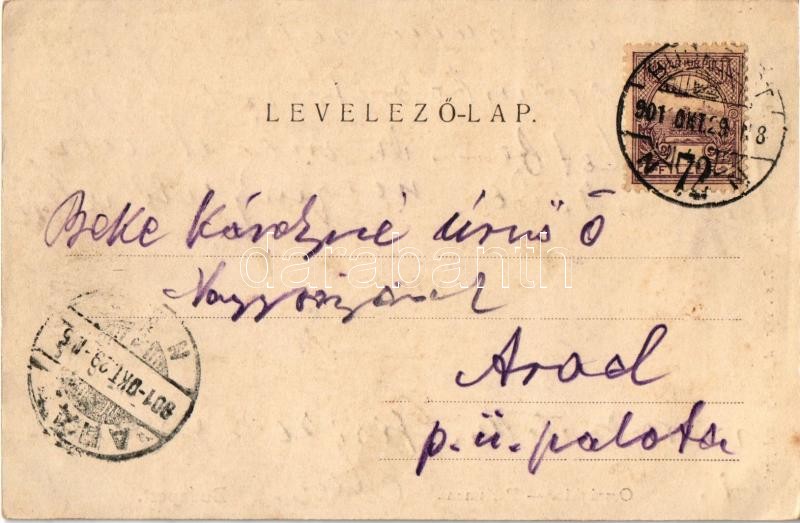 LEVELEZŐ-LAP.
MAGYAR KIR. POSTA
901 OKT. 29
72
Beke Károlyné úrnő Ő
Nagyságának
Arad
p. ü. palota
ARAD
901-OKT. 29
darabanth
Budapest